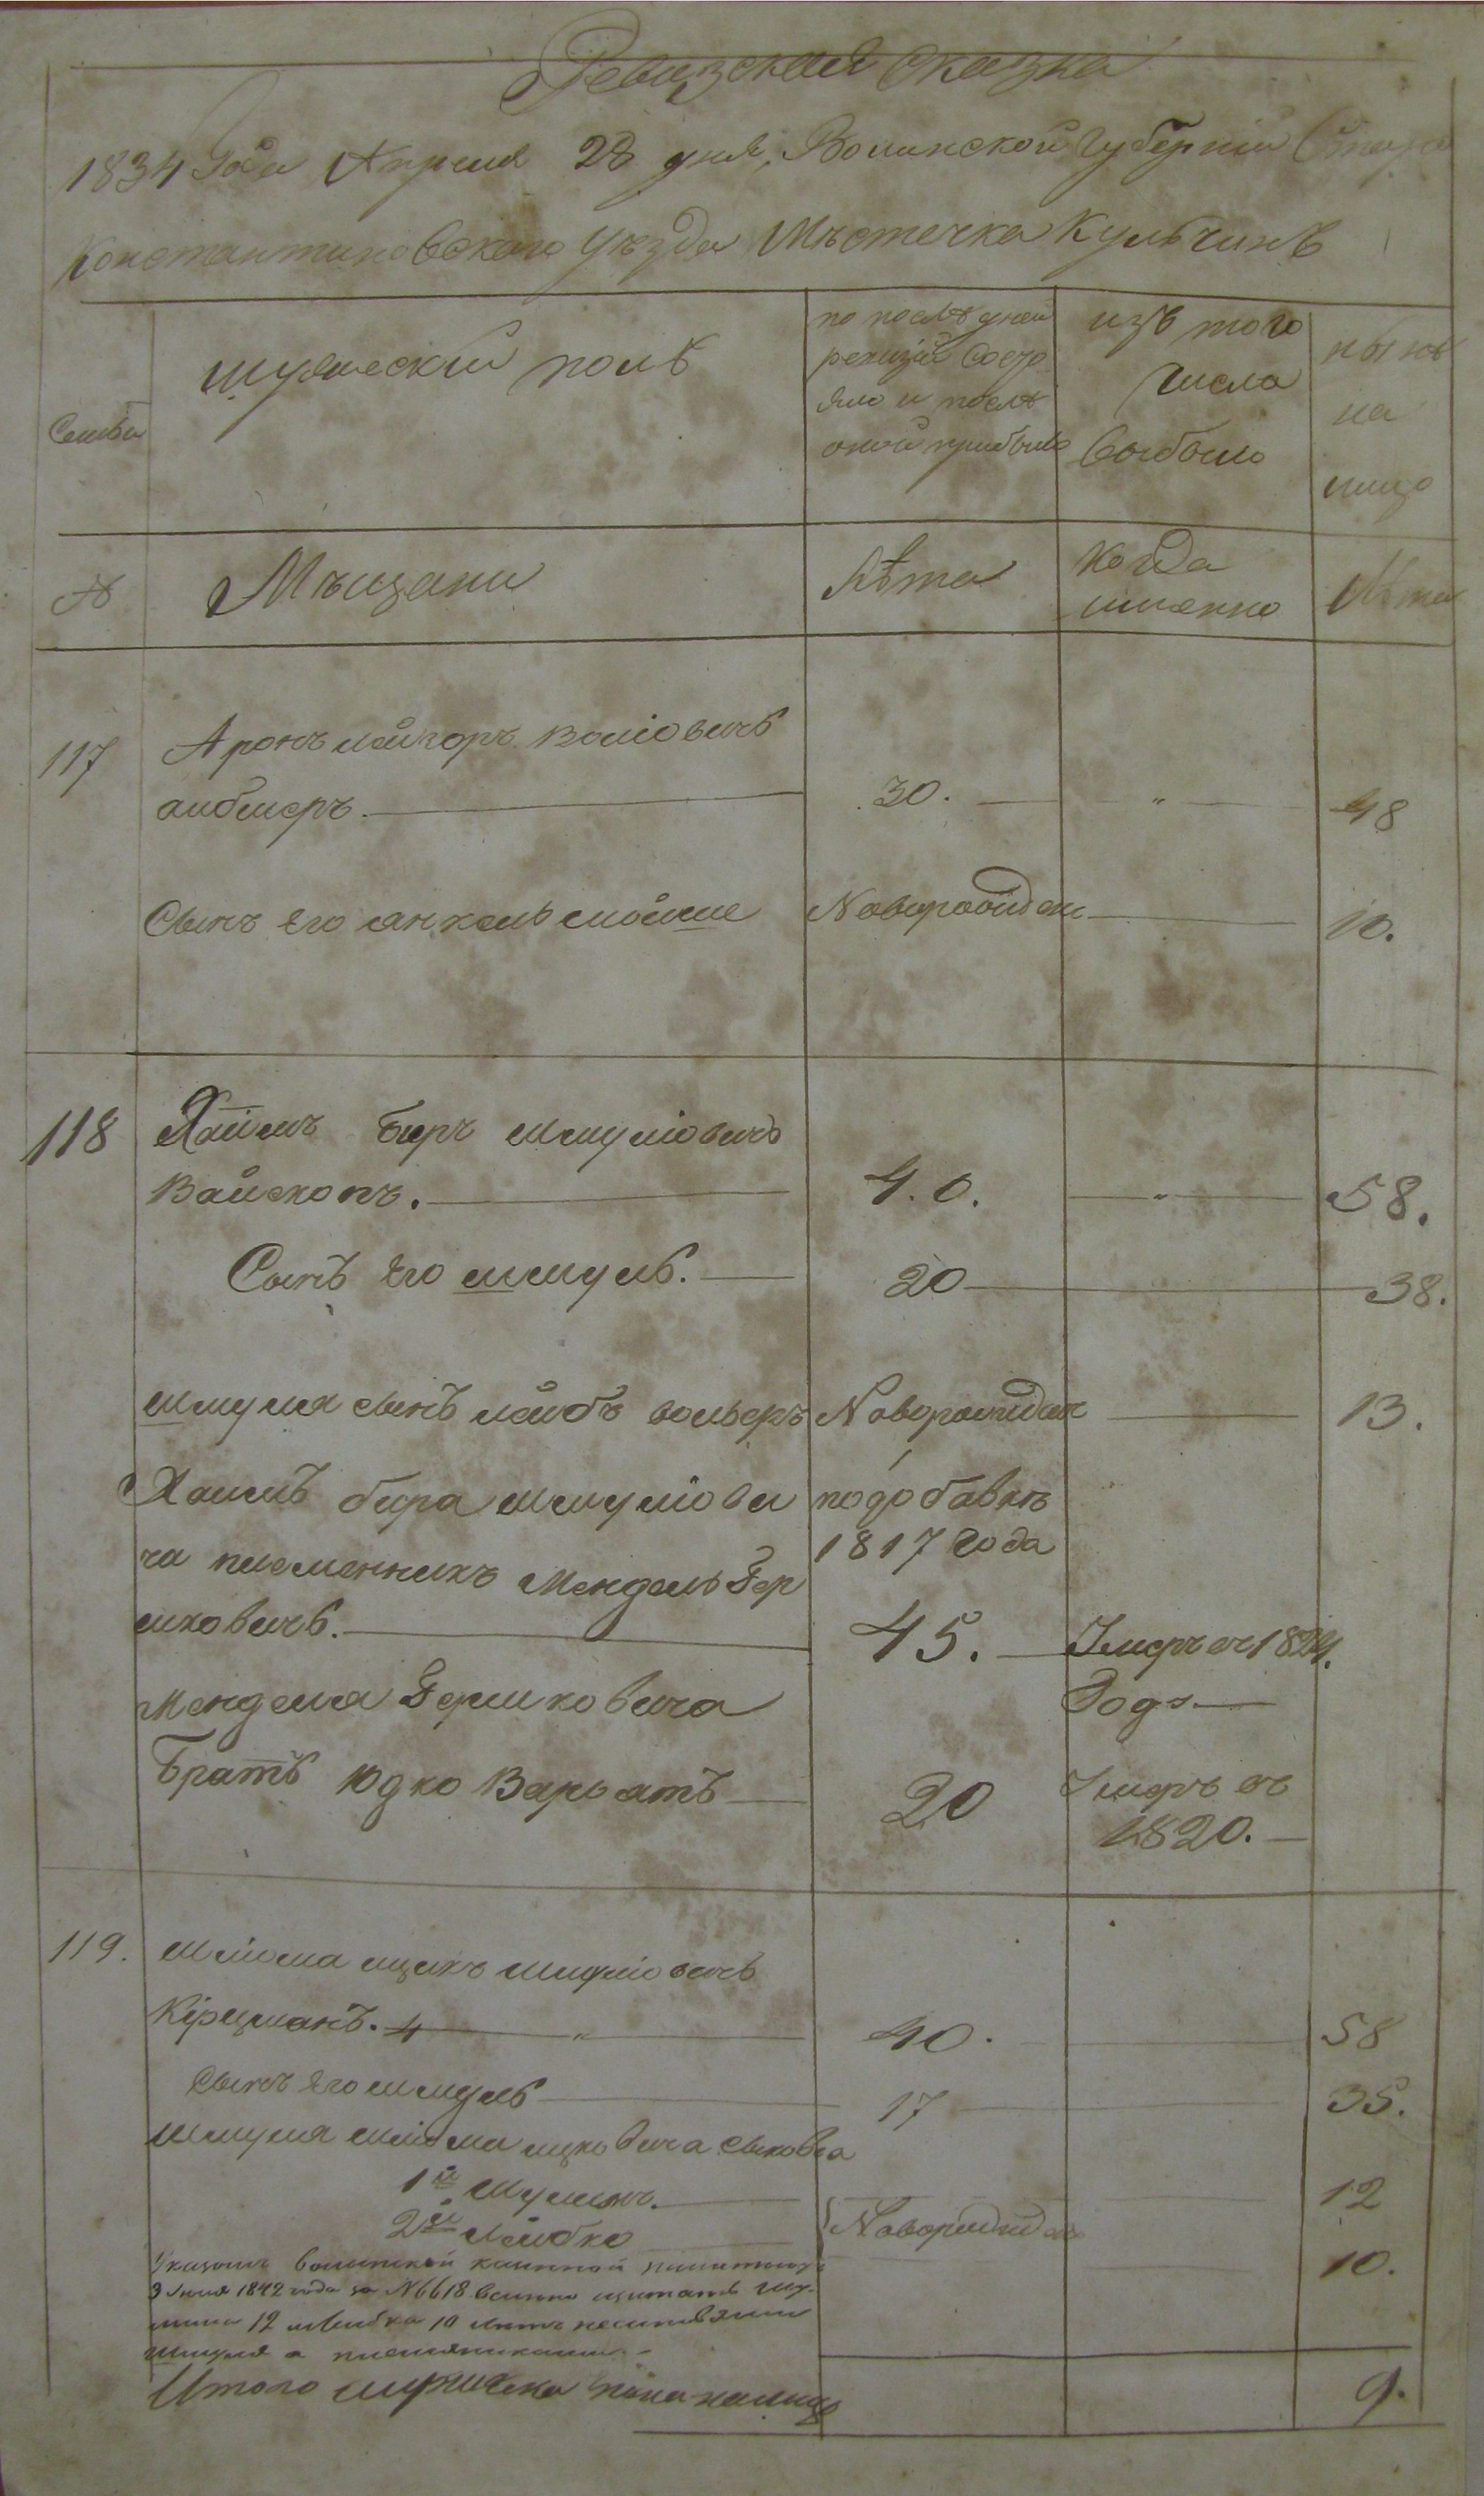 Ревизская сказка
1834 Года Апреля 28 дня, Волинской Губернiи Старо
Константиновскаго Уѣзда Мѣстечка Кульчинъ
Семьи
мужескiй полъ
по послѣдней
ревизiи состо
яло и послѣ
оной прибыло
изъ того
числа
выбыло
нынѣ
на
лицо
№
Мѣщани
Лѣта
когда
имянно
Лѣта
117
Аронъ Лейзоръ Волiовичъ
Либшеръ.
30.
"
48
Сынъ его Янкель Мойше
Новорожден
10.
118
Хаимъ Беръ Шмулiовичъ
Вайскопъ.
4.0.
"
58.
Сынъ его Шмуль.
20
38.
Шмуля сынъ Лейбъ Вольеръ
Новорожден
13.
Хаимъ Бера Шмулiови
по добавкѣ
1817 года
ча племенникъ Мендель Гер
шковичъ.
45.
Умеръ въ 1824.
Годъ
Менделя Гершковича
Братъ Юдко Варьятъ
20
Умеръ въ
1820.
119.
Шлiома Ицикъ Шмулiовичъ
Кiрцманъ.
"
40.
58
Сынъ его Шмуль
17
35.
Шмуля Шлiома Ицковича сыновья
1й Шулимъ.
12
2й Лейбко
Новорожден
10.
Указомъ Волынской казенной палаты
3 Iюня 1842 года за №6618 велѣно щитать Шу-
лима 12 и Лейбка 10 лѣтъ не сыновями
Шмуля а племяниками.
Итого мужеска пола на лицо
9.